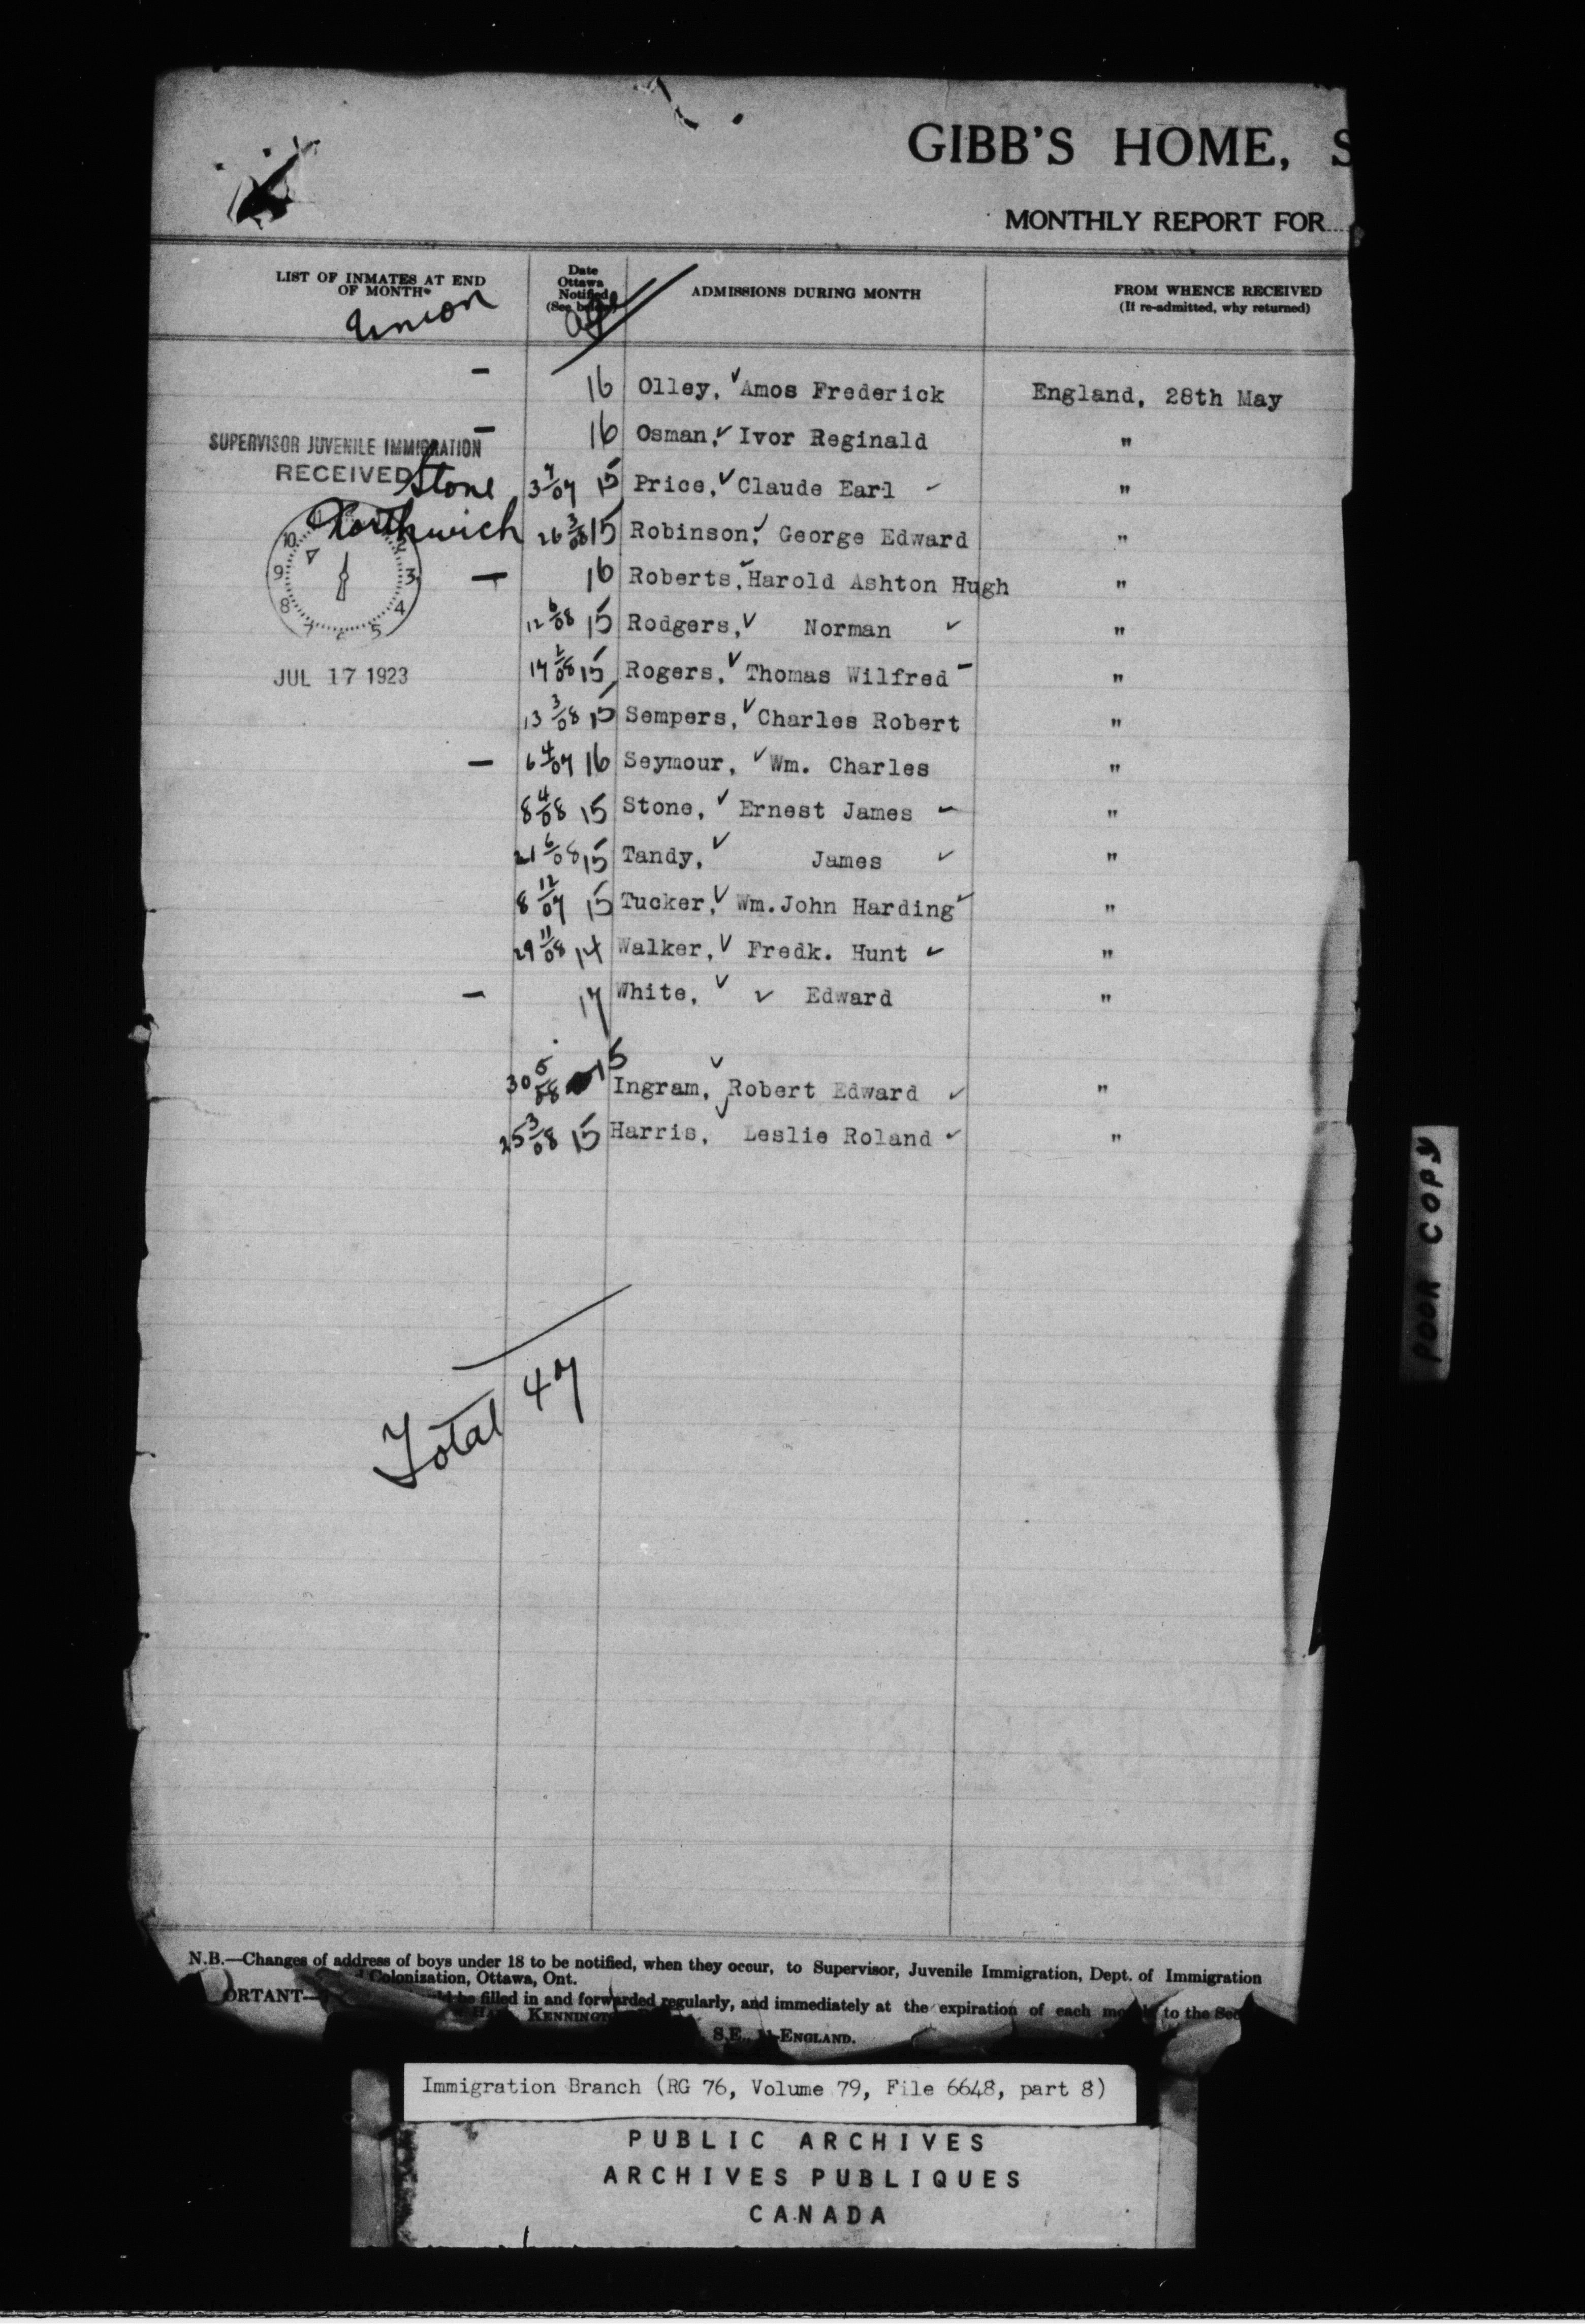 GIBB'S HOME, S
MONTHLY REPORT FOR....
LIST OF INMATES AT END
OF MONTH
Union
Date
Ottawa
Notified
(See below)
age
ADMISSIONS DURING MONTH
FROM WHENCE RECEIVED
(If re-admitted, why returned)
- 16 Olley, ✓ Amos Frederick England, 28th May
- 16 Osman, ✓ Ivor Reginald "
SUPERVISOR JUVENILE IMMIGRATION
RECEIVED
Stone 3 7/07 15 Price, ✓ Claude Earl ✓ "
Northwich 26 3/08 15 Robinson, ✓ George Edward "
- 16 Roberts, ✓ Harold Ashton Hugh "
10 2 9 3 8 4 7 6 5
12 6/08 15 Rodgers, ✓ Norman ✓ "
JUL 17 1923
14 2/08 15 Rogers, ✓ Thomas Wilfred - "
13 3/08 15 Sempers, ✓ Charles Robert "
- 6 4/07 16 Seymour, ✓ Wm. Charles "
8 4/08 15 Stone, ✓ Ernest James - "
21 6/08 15 Tandy, ✓ James ✓ "
8 12/07 15 Tucker, ✓ Wm. John Harding ✓ "
29 11/08 14 Walker, ✓ Fredk. Hunt ✓ "
- 17 White, ✓ ✓ Edward "
30 5/08 15 Ingram, ✓ Robert Edward ✓ "
25 3/08 15 Harris, ✓ Leslie Roland ✓ "
Total 47
N.B.—Changes of address of boys under 18 to be notified, when they occur, to Supervisor, Juvenile Immigration, Dept. of Immigration
Colonization, Ottawa, Ont.
ORTANT— be filled in and forwarded regularly, and immediately at the expiration of each month to the Sec
S.E., ENGLAND.
POOR COPY
Immigration Branch (RG 76, Volume 79, File 6648, part 8)
PUBLIC ARCHIVES
ARCHIVES PUBLIQUES
CANADA